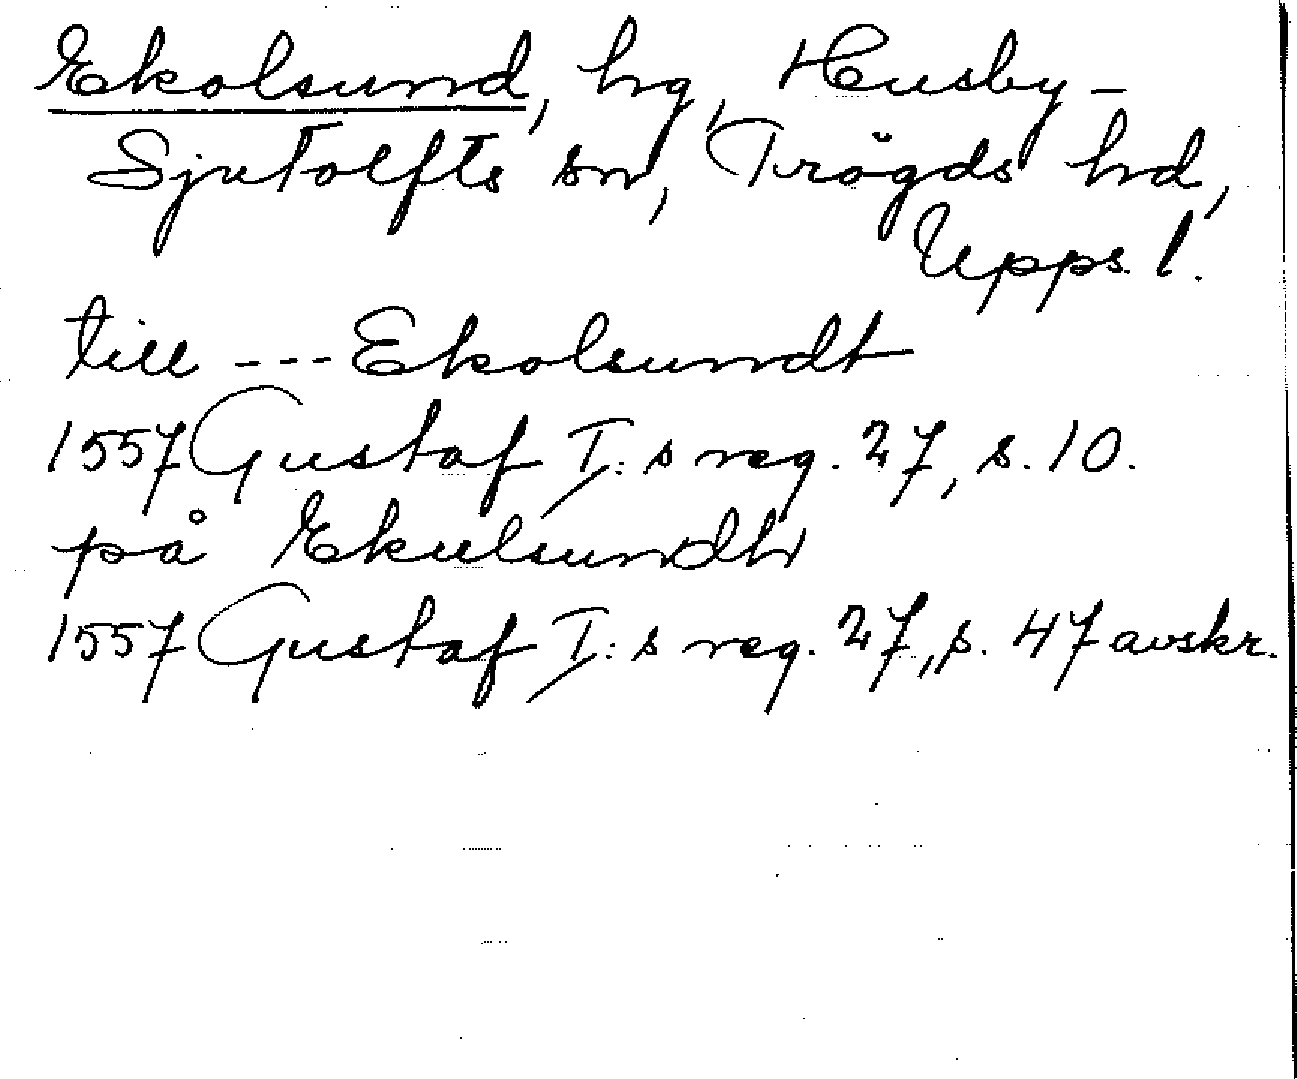 Ekolsund, hg, Husby-
Sjutolfts sn, Trögds hd,
Upps. l.
till --- Ekolsundt
1557 Gustaf I:s reg. 27, s. 10.
på Ekulsundh
1557 Gustaf I:s reg. 27, s. 47 avskr.